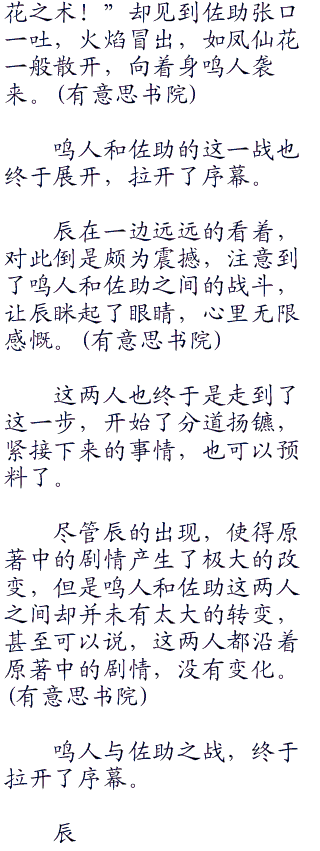 花之术！”却见到佐助张口
一吐，火焰冒出，如凤仙花
一般散开，向着身鸣人袭
来。(有意思书院)
鸣人和佐助的这一战也
终于展开，拉开了序幕。
辰在一边远远的看着，
对此倒是颇为震撼，注意到
了鸣人和佐助之间的战斗，
让辰眯起了眼睛，心里无限
感慨。(有意思书院)
这两人也终于是走到了
这一步，开始了分道扬镳，
紧接下来的事情，也可以预
料了。
尽管辰的出现，使得原
著中的剧情产生了极大的改
变，但是鸣人和佐助这两人
之间却并未有太大的转变，
甚至可以说，这两人都沿着
原著中的剧情，没有变化。
(有意思书院)
鸣人与佐助之战，终于
拉开了序幕。
辰